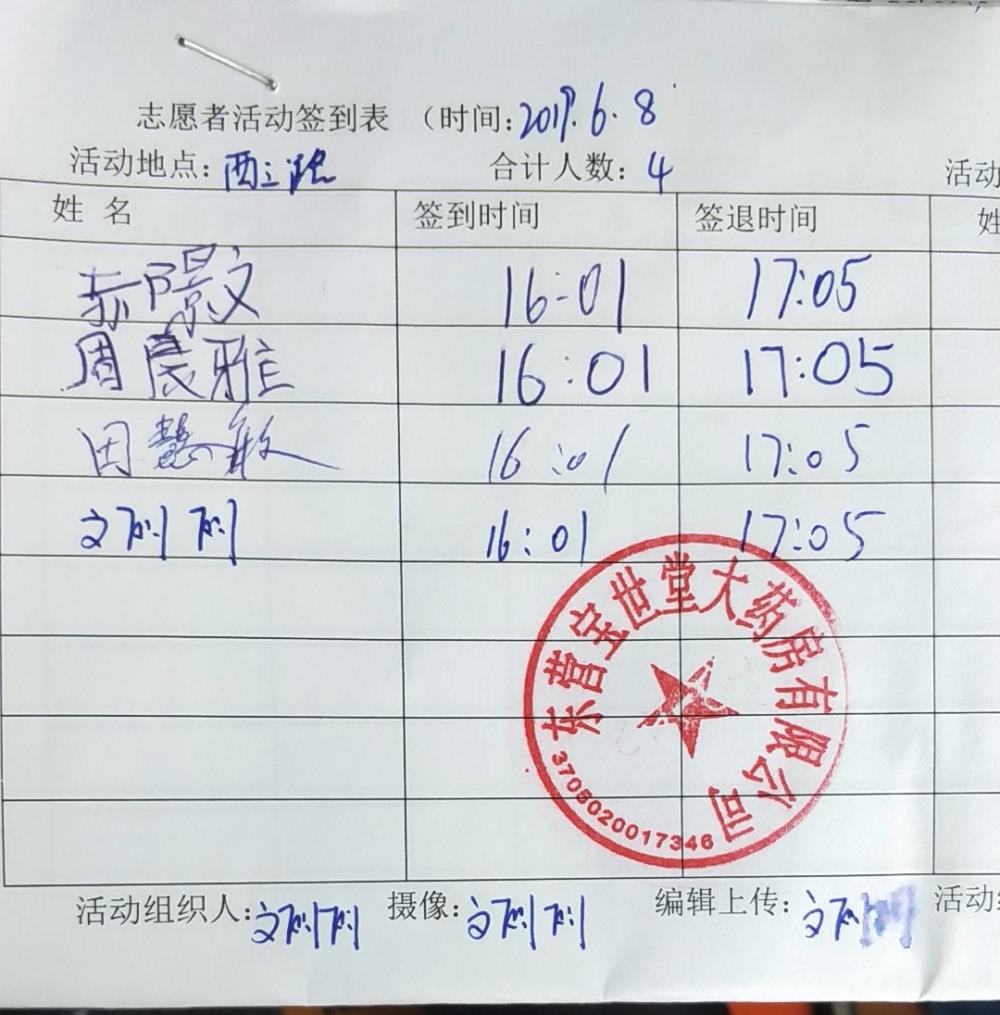 志愿者活动签到表 （时间:2019.6.8
活动地点: 西三路 合计人数: 4 活动
姓 名 签到时间 签退时间 姓
郝景文 16:01 17:05
周晨雅 16:01 17:05
田慧敏 16:01 17:05
文 16:01 17:05
东营宝世堂大药房有限公司
3705020017346
活动组织人: 文 摄像: 文 编辑上传: 文 活动